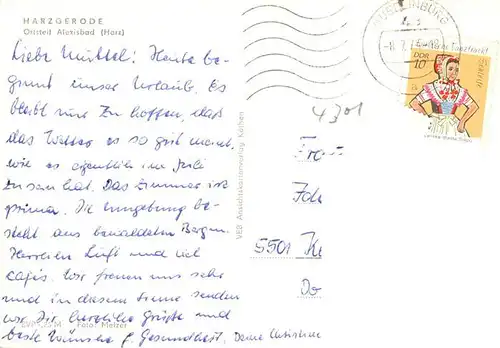 HARZGERODE
Ortsteil Alexisbad (Harz)
Liebe Mutti! Heute be-
ginnt unser Urlaub. Es
bleibt nur zu hoffen, daß
das Wetter es so gut meint,
wie es eigentlich im Juli
zu sein hat. Das Zimmer ist
prima. Die Umgebung be-
steht aus bewaldeten Bergen.
Herrliche Luft und viel
Cafés. Wir freuen uns sehr
und in diesem Sinne senden
wir Dir herzliche Grüße und
beste Wünsche f. Gesundheit, Deine
EVP Foto: Metzer
VEB Ansichtskartenverlag Köthen
QUEDLINBURG
DDR
10
4301
Frau
5501